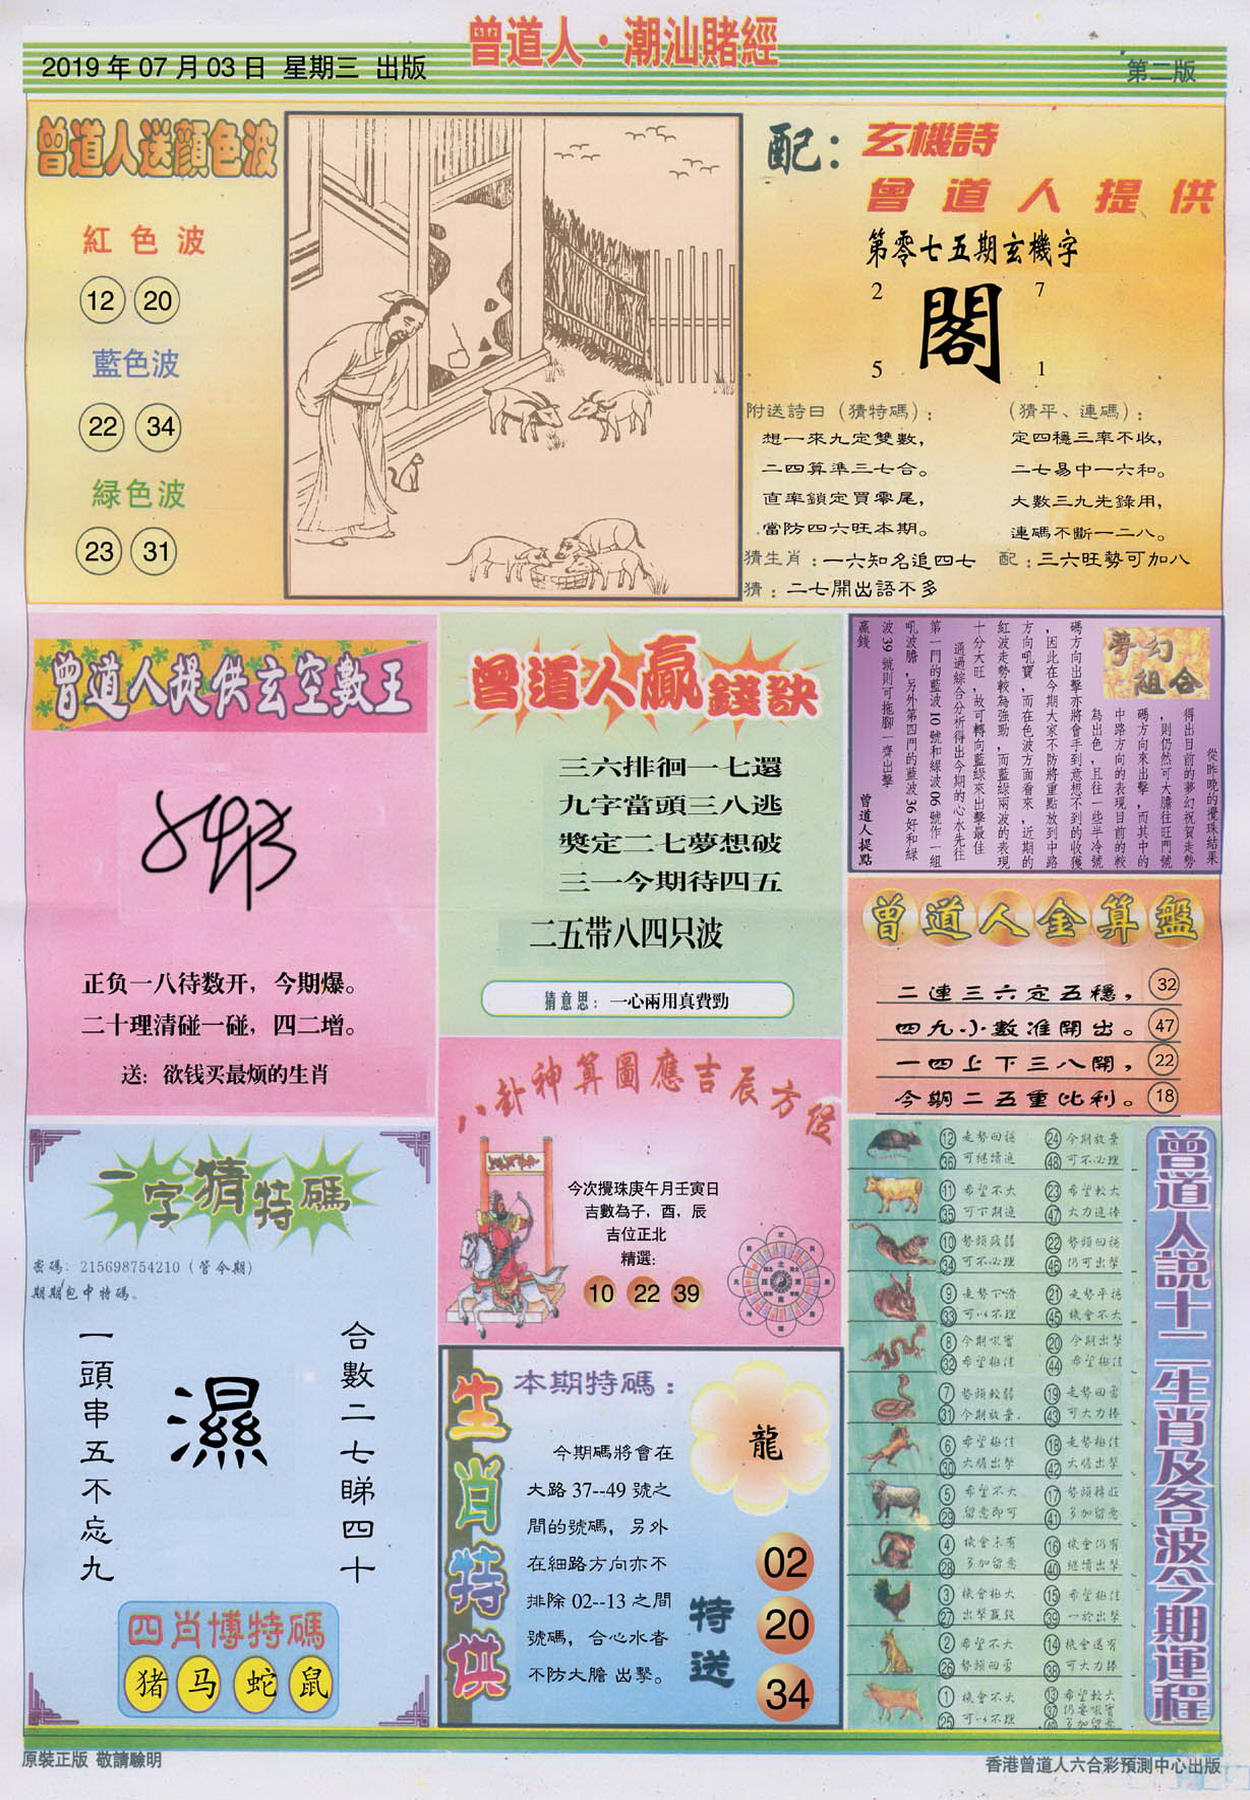 曾道人·潮汕賭經
2019 年 07 月 03 日 星期三 出版
第二版
曾道人送顔色波
紅色波
12 20
藍色波
22 34
緑色波
23 31
配：玄機詩
曾道人提供
第零七五期玄機字
2 7
閣
5 1
附送詩曰（猜特碼）：
想一來九定雙數，
二四算準三七合。
直率鎖定買零尾，
當防四六旺本期。
（猜平、連碼）：
定四穩三率不收，
二七易中一六和。
大數三九先錄用，
連碼不斷一二八。
猜生肖：一六知名追四七
配：三六旺勢可加八
猜：二七開出語不多
曾道人提供玄空數王
正负一八待数开，今期爆。
二十理清碰一碰，四二增。
送：欲钱买最烦的生肖
曾道人贏錢訣
三六排徊一七還
九字當頭三八逃
獎定二七夢想破
三一今期待四五
二五带八四只波
猜意思：一心兩用真費勁
夢幻組合
從昨晚的攪珠結果
得出目前的夢幻祝賀走勢
，則仍然可大膽往旺門號
碼方向來出擊，而其中的
中路方向的表現目前的較
為出色，且往一些半冷號
碼方向出擊亦將會手到意想不到的收獲
，因此在今期大家不防將重點放到中路
方向吼寶，而在色波方面看來，近期的
紅波走勢較為強勁，而藍綠兩波的表現
十分大旺，故可轉向藍綠來出擊最佳
通過綜合分析得出今期的心水先往
第一門的藍波 10 號和綠波 06 號作一組
吼波膽，另外第四門的藍波 36 好和綠
波 39 號則可拖腳一齊出擊
贏錢
曾道人提點
曾道人金算盤
二連三六定五穩， 32
四九小數准開出。 47
一四上下三八開， 22
今期二五重比利。 18
八卦神算圖應吉辰方位
今次攪珠庚午月壬寅日
吉數為子，酉，辰
吉位正北
精選：
10 22 39
一字猜特碼
密碼：215698754210（管今期）
期期包中特碼。
一頭串五不忘九
濕
合數二七睇四十
四肖博特碼
猪 马 蛇 鼠
生肖特供
本期特碼：
龍
今期碼將會在
大路 37--49 號之
間的號碼，另外
在細路方向亦不
排除 02--13 之間
號碼，合心水者
不防大膽 出擊。
特送
02
20
34
曾道人說十二生肖及各波今期運程
12 走勢回穩 24 今期放棄
36 可繼續進 48 可不必理
11 希望不大 23 希望較大
35 可下期進 47 大力進捧
10 勢頭疲弱 22 勢頭回穩
34 可不必理 46 仍可出擊
9 走勢下滑 21 走勢平穩
33 可以不理 45 機會不大
8 今期吼實 20 今期出擊
32 希望極佳 44 希望極佳
7 勢頭較弱 19 走勢回當
31 今期放棄. 43 可大力捧
6 希望極佳 18 走勢極佳
30 大膽出擊 42 大膽出擊
5 希望不大 17 勢頭轉旺
29 留意即可 41 多加留意
4 機會未有 16 機會仍有
28 多加留意 40 繼續出擊
3 機會極大 15 希望極佳
27 出擊贏錢 39 一於出擊
2 希望不大 14 機會還有
26 勢頭回當 38 可大力捧
1 機會不大 13 希望較大
25 可以不理 37 仍要吼實
49 多加留意
原裝正版 敬請驗明
香港曾道人六合彩預測中心出版